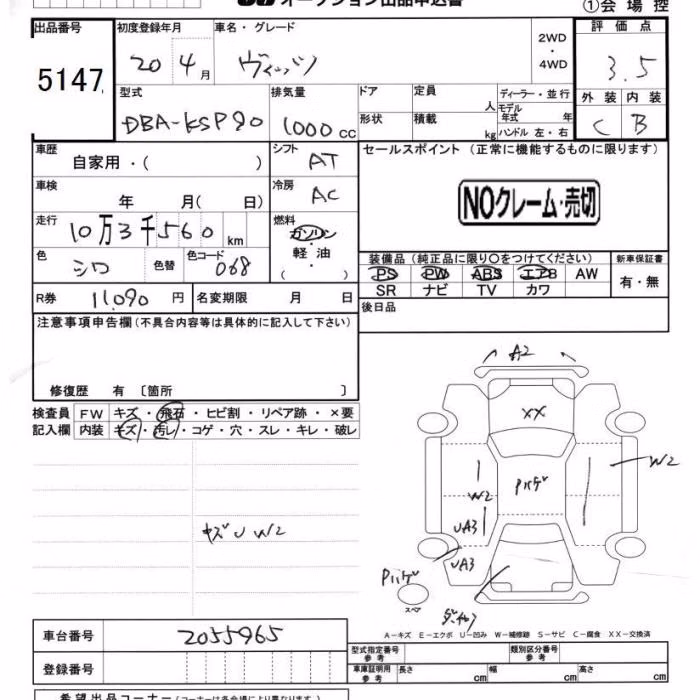 オークション出品申込書
①会場控
出品番号
5147
初度登録年月
20 4月
車名・グレード
ヴィッツ
2WD
・
4WD
評価点
3.5
型式
DBA-KSP90
排気量
1000cc
ドア
定員
人
ディーラー・並行
モデル年式 年
形状
積載
kg
ハンドル 左・右
外装 内装
C B
車歴
自家用・( )
シフト
AT
セールスポイント (正常に機能するものに限ります)
NOクレーム・売切
車検
年 月( 日)
冷房
AC
走行
10万3千560km
燃料
ガソリン
・
軽油
( )
色
シロ
色替
色コード
068
装備品 (純正品に限り○をつけてください)
新車保証書
PS PW ABS エアB AW
SR ナビ TV カワ
有・無
R券 11,090円
名変期限 月 日
後日品
注意事項申告欄(不具合内容等は具体的に記入して下さい)
修復歴 有 〔箇所 〕
検査員 FW キズ・飛石・ヒビ割・リペア跡・×要
記入欄 内装 キズ・汚レ・コゲ・穴・スレ・キレ・破レ
キズU W2
A2
XX
W2
W2
Pハゲ
UA3
UA3
Pハゲ
スペア
A−キズ E−エクボ U−凹み W−補修跡 S−サビ C−腐食 XX−交換済
車台番号
2055965
登録番号
型式指定番号
参考
類別区分番号
参考
車庫証明用
参考
長さ cm 幅 cm 高さ cm
希望出品コーナー (コーナーは各会場により異なります)